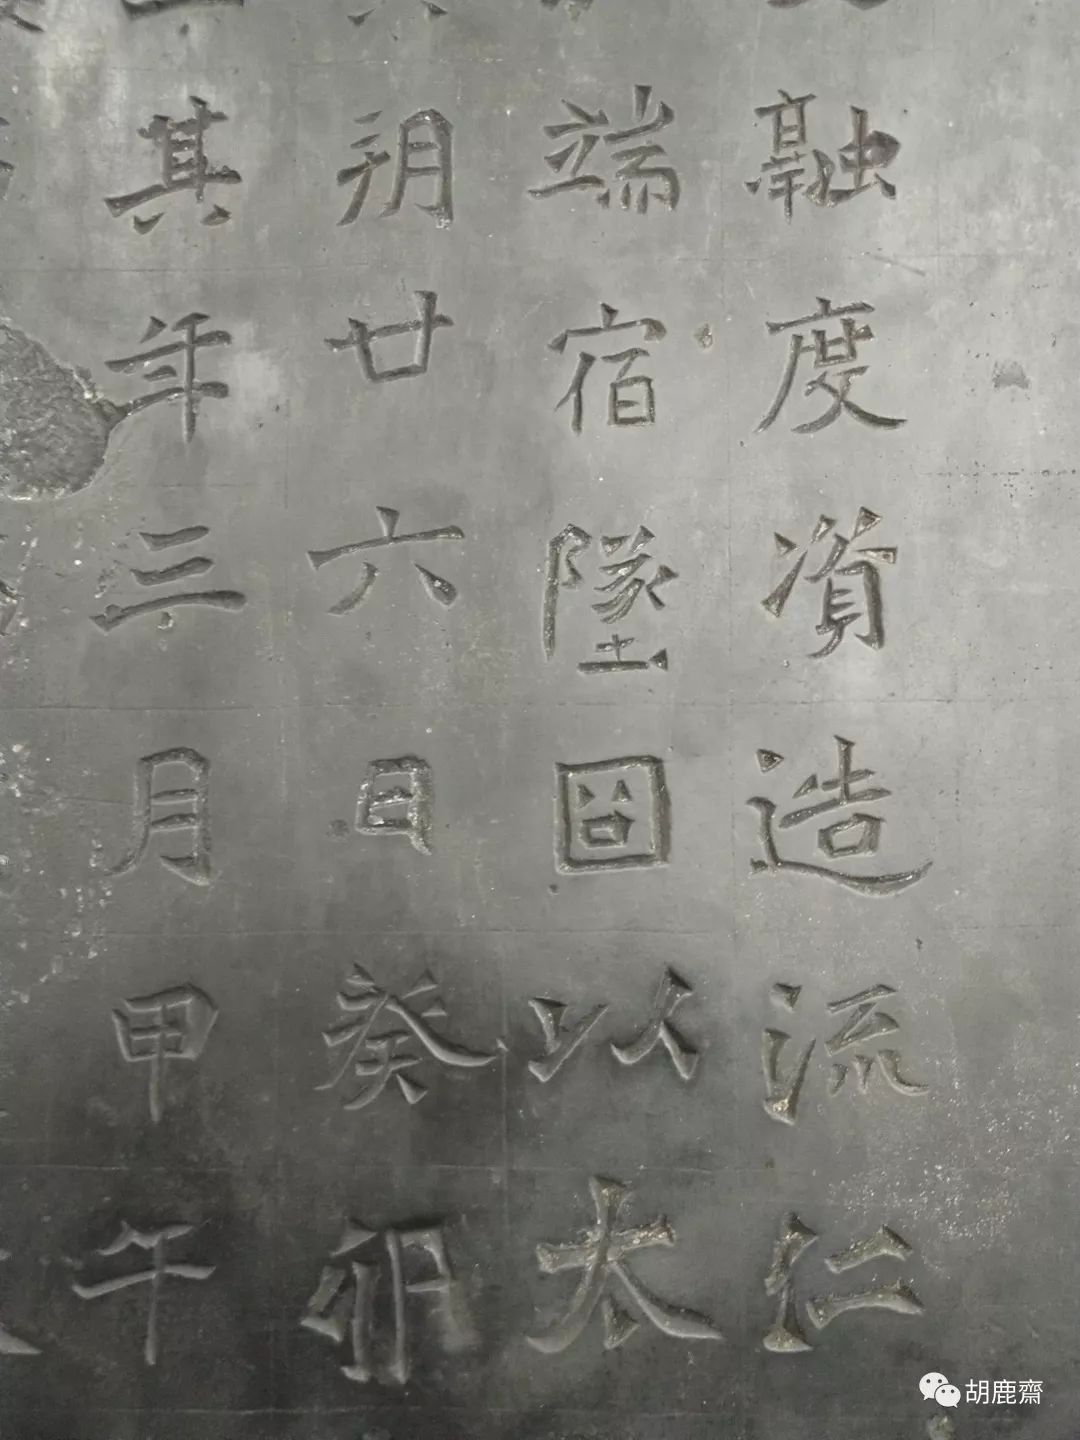 融度資造流仁
端宿墜以太
朔廿六日癸卯
其年三月甲午
胡鹿齋